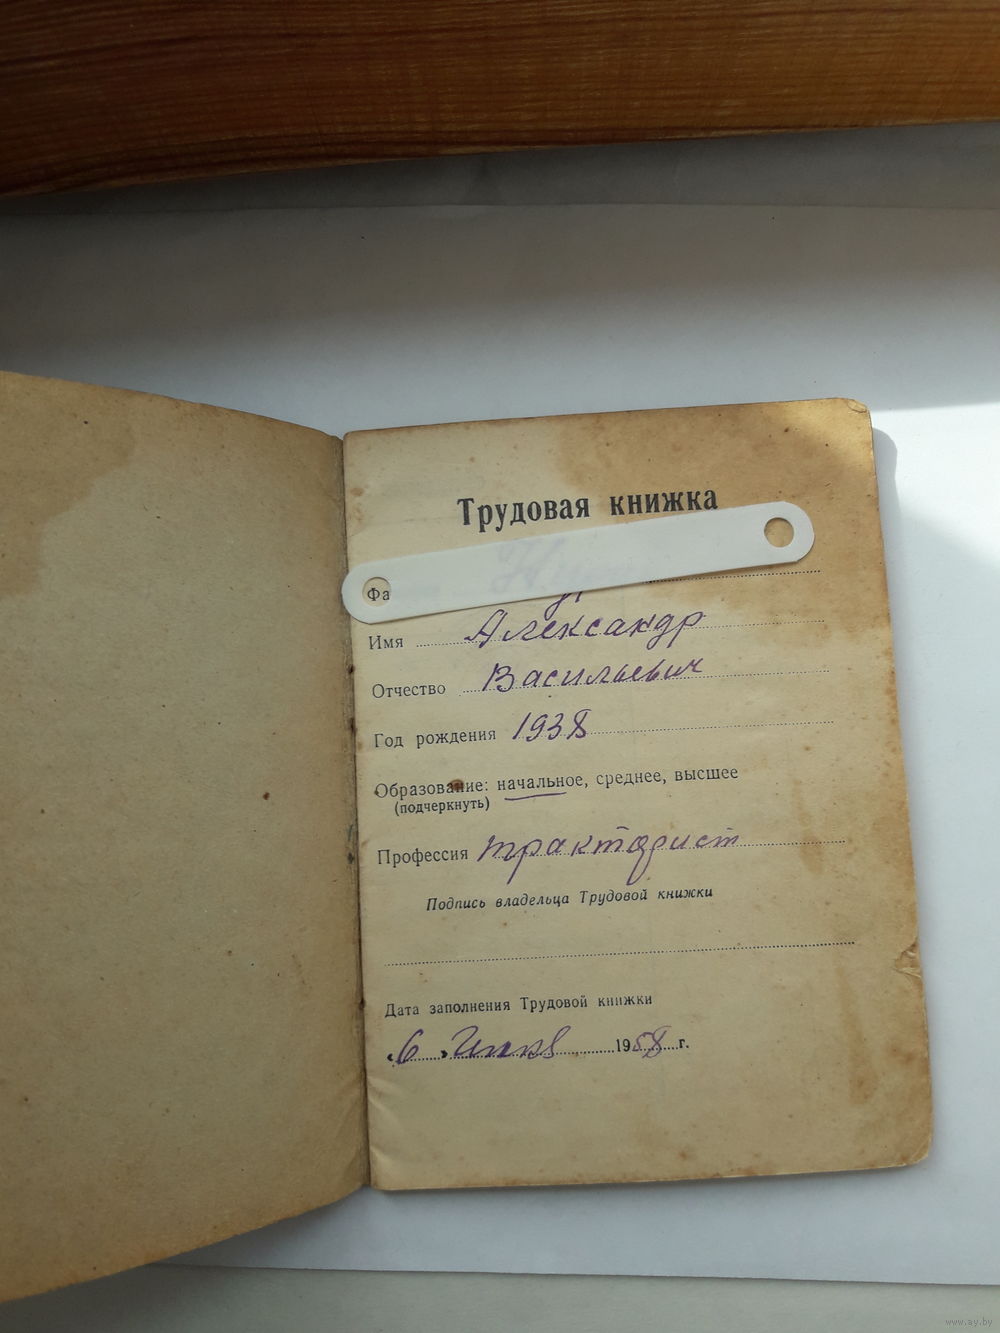 Трудовая книжка
Фа
Имя Александр
Отчество Васильевич
Год рождения 1938
Образование: начальное, среднее, высшее
(подчеркнуть)
Профессия тракторист
Подпись владельца Трудовой книжки
Дата заполнения Трудовой книжки
"6" 1958 г.
www.ay.by